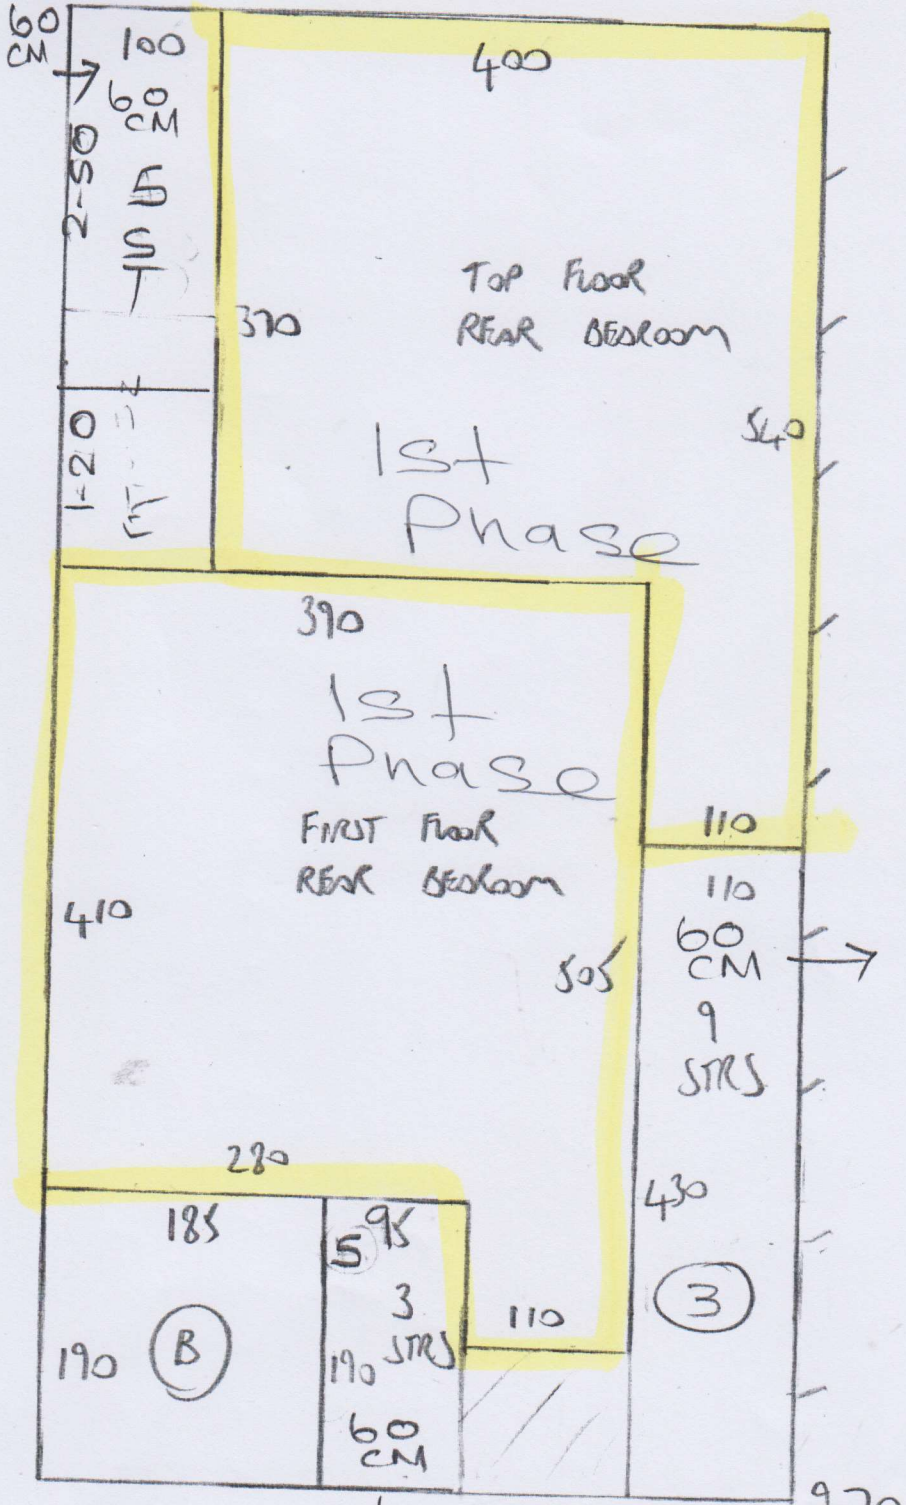 60
CM
100
60
CM
5
ST
2-50
400
TOP FLOOR
REAR BEDROOM
370
540
1-20
1st
Phase
390
1st
Phase
FIRST FLOOR
REAR BEDROOM
110
110
60
CM
9
STRS
410
505
280
430
185
5
95
3
STRS
3
110
190
B
190
60
CM
970